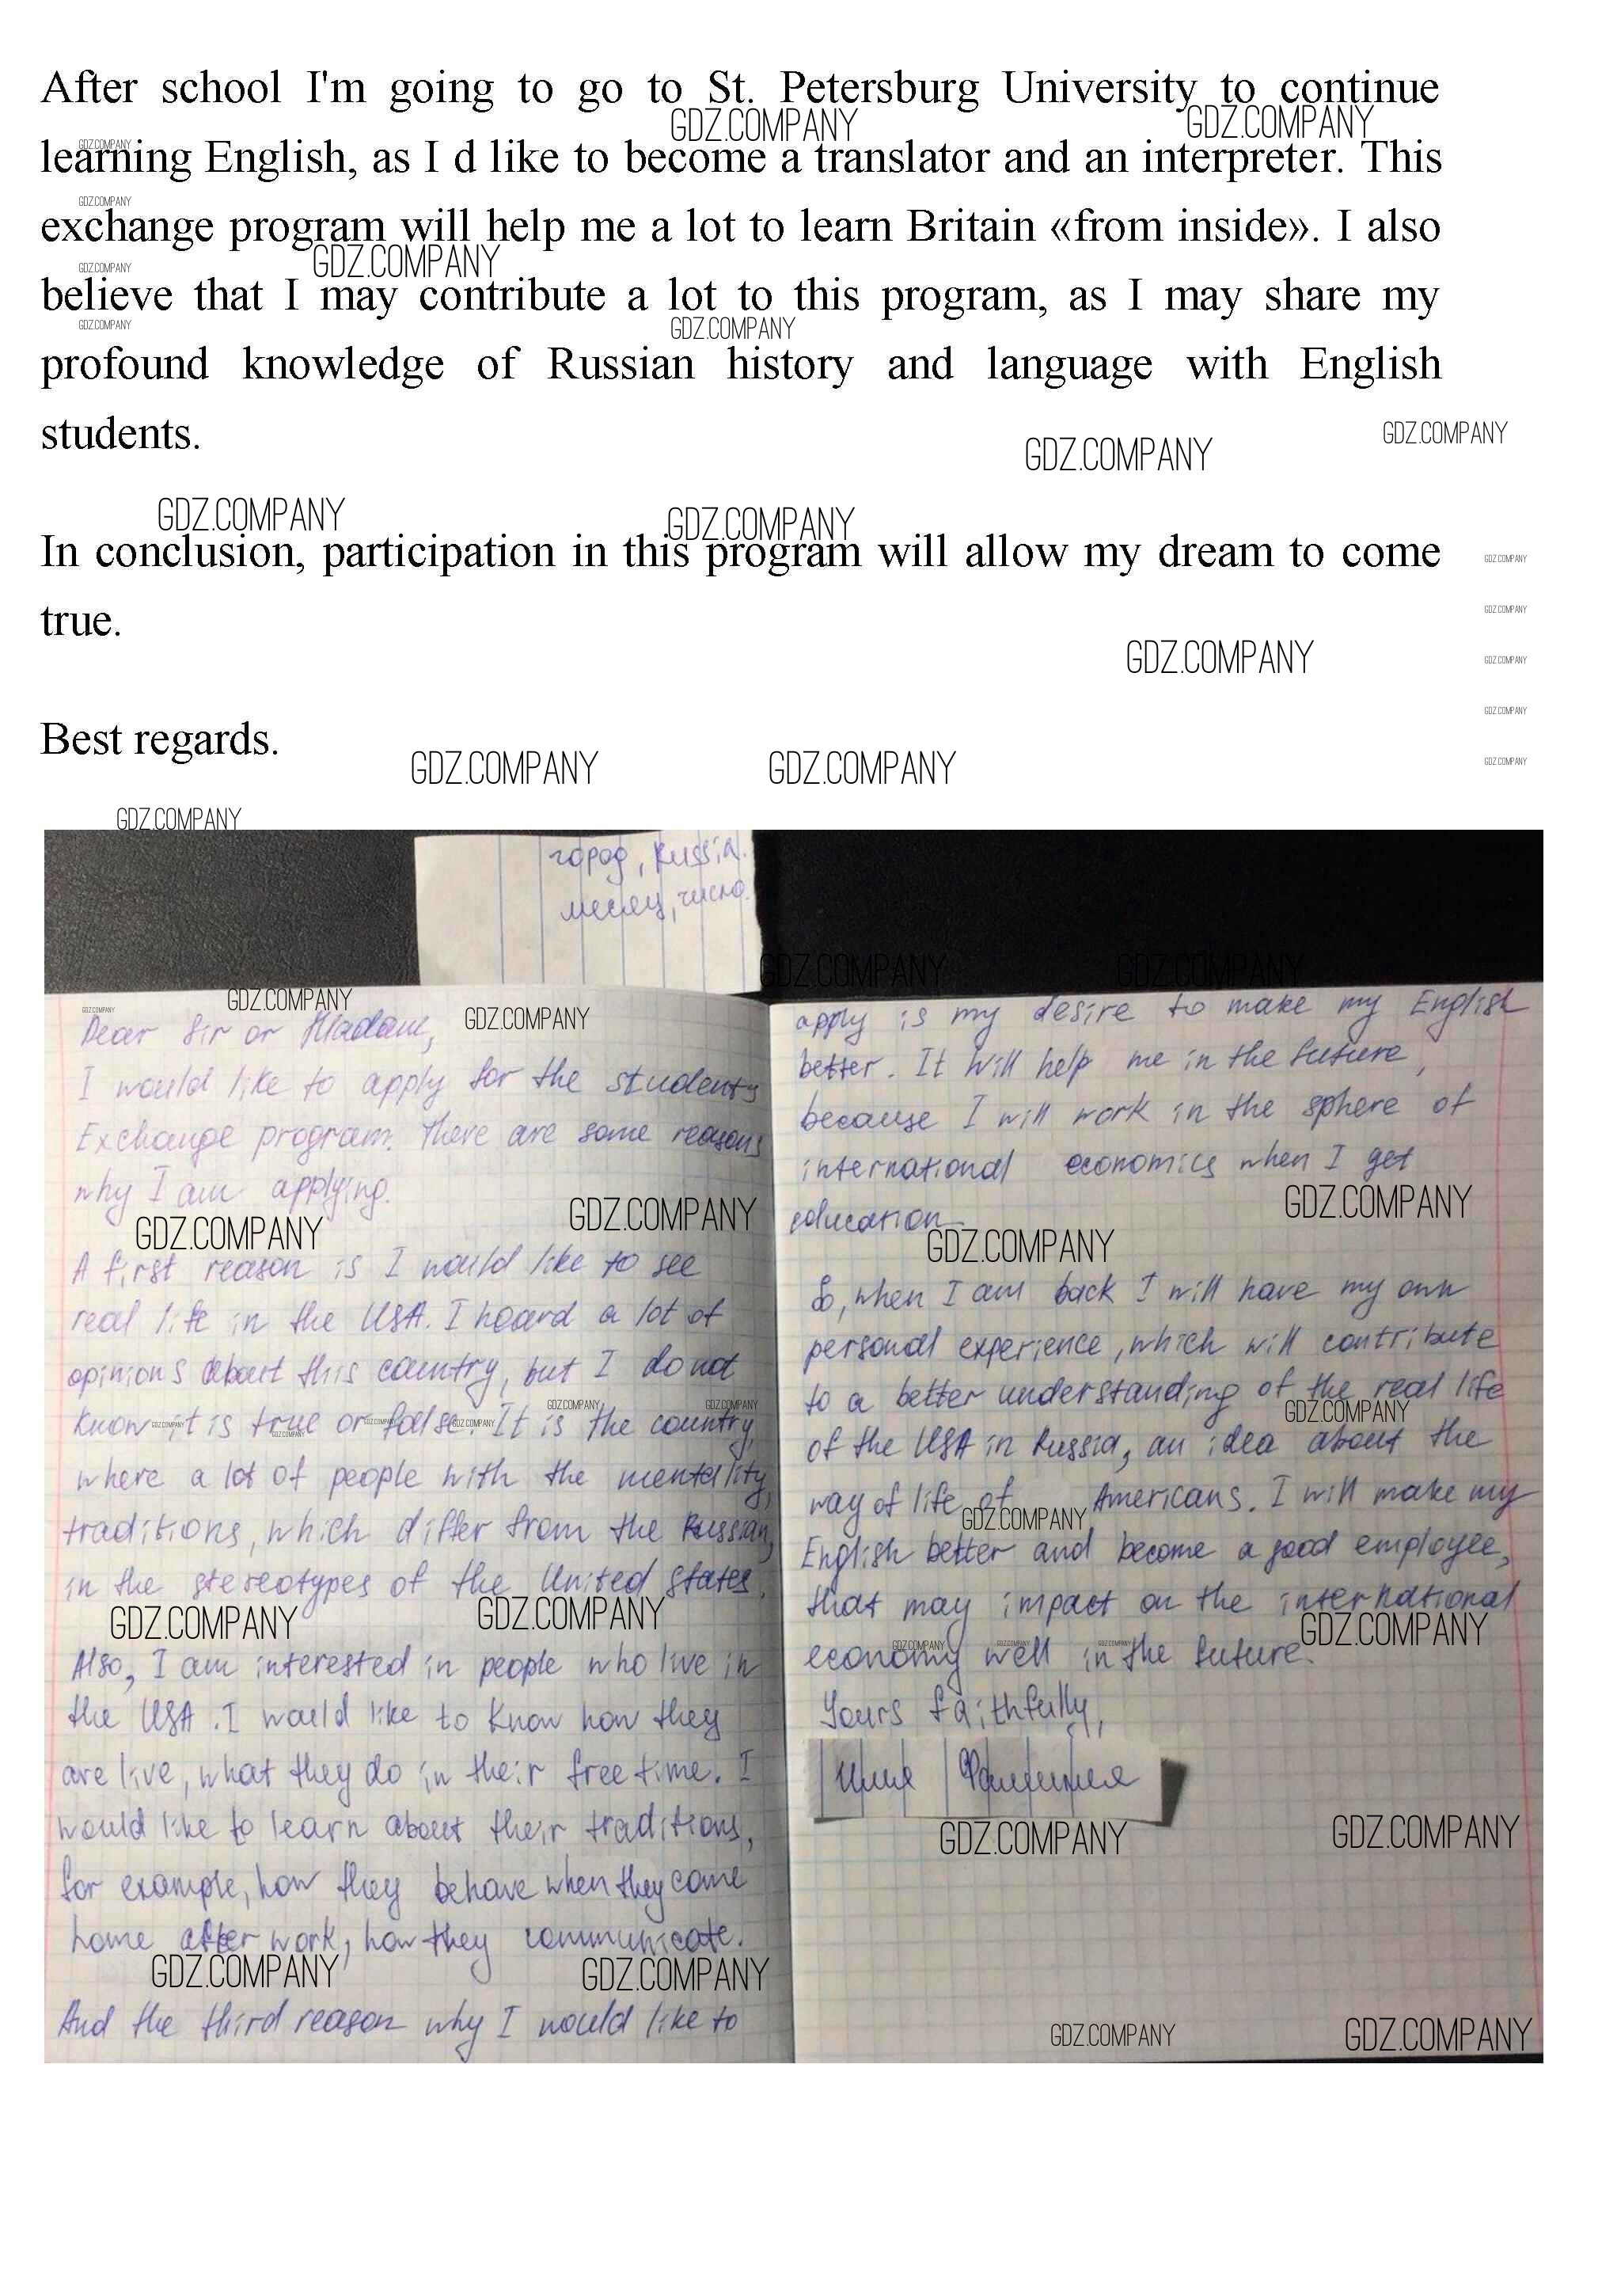 After school I'm going to go to St. Petersburg University to continue
learning English, as I d like to become a translator and an interpreter. This
exchange program will help me a lot to learn Britain «from inside». I also
believe that I may contribute a lot to this program, as I may share my
profound knowledge of Russian history and language with English
students.
In conclusion, participation in this program will allow my dream to come
true.
Best regards.
город, Russia.
месяц, число.
Dear Sir or Madam,
I would like to apply for the students
Exchange program. There are some reasons
why I am applying.
A first reason is I would like to see
real life in the USA. I heard a lot of
opinions about this country, but I do not
know it is true or false. It is the country,
where a lot of people with the mentality,
traditions, which differ from the Russian,
in the stereotypes of the United States.
Also, I am interested in people who live in
the USA. I would like to know how they
are live, what they do in their free time. I
would like to learn about their traditions,
for example, how they behave when they come
home after work, how they communicate.
And the third reason why I would like to
apply is my desire to make my English
better. It will help me in the future,
because I will work in the sphere of
international economics when I get
education.
So, when I am back I will have my own
personal experience, which will contribute
to a better understanding of the real life
of the USA in Russia, an idea about the
way of life of Americans. I will make my
English better and become a good employee,
that may impact on the international
economy well in the future.
Yours faithfully,
Имя Фамилия
GDZ.COMPANY